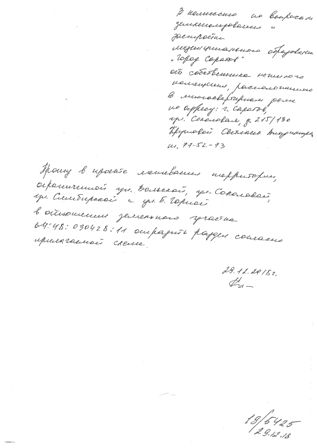 В комиссию по вопросам
землепользования и
застройки
муниципального образования
"Город Саратов"
от собственника жилого
помещения, расположенного
в многоквартирном доме
по адресу: г. Саратов,
ул. Соколовая, д. 215/130
Светланы
Прошу в проекте межевания территории,
ограниченной ул. Вольской, ул. Соколовой,
ул. Симбирской и ул. Б. Горной
в отношении земельного участка
64:48:030428:11 отразить раздел согласно
прилагаемой схеме
29.12.2018г.
19/5425
29.12.18